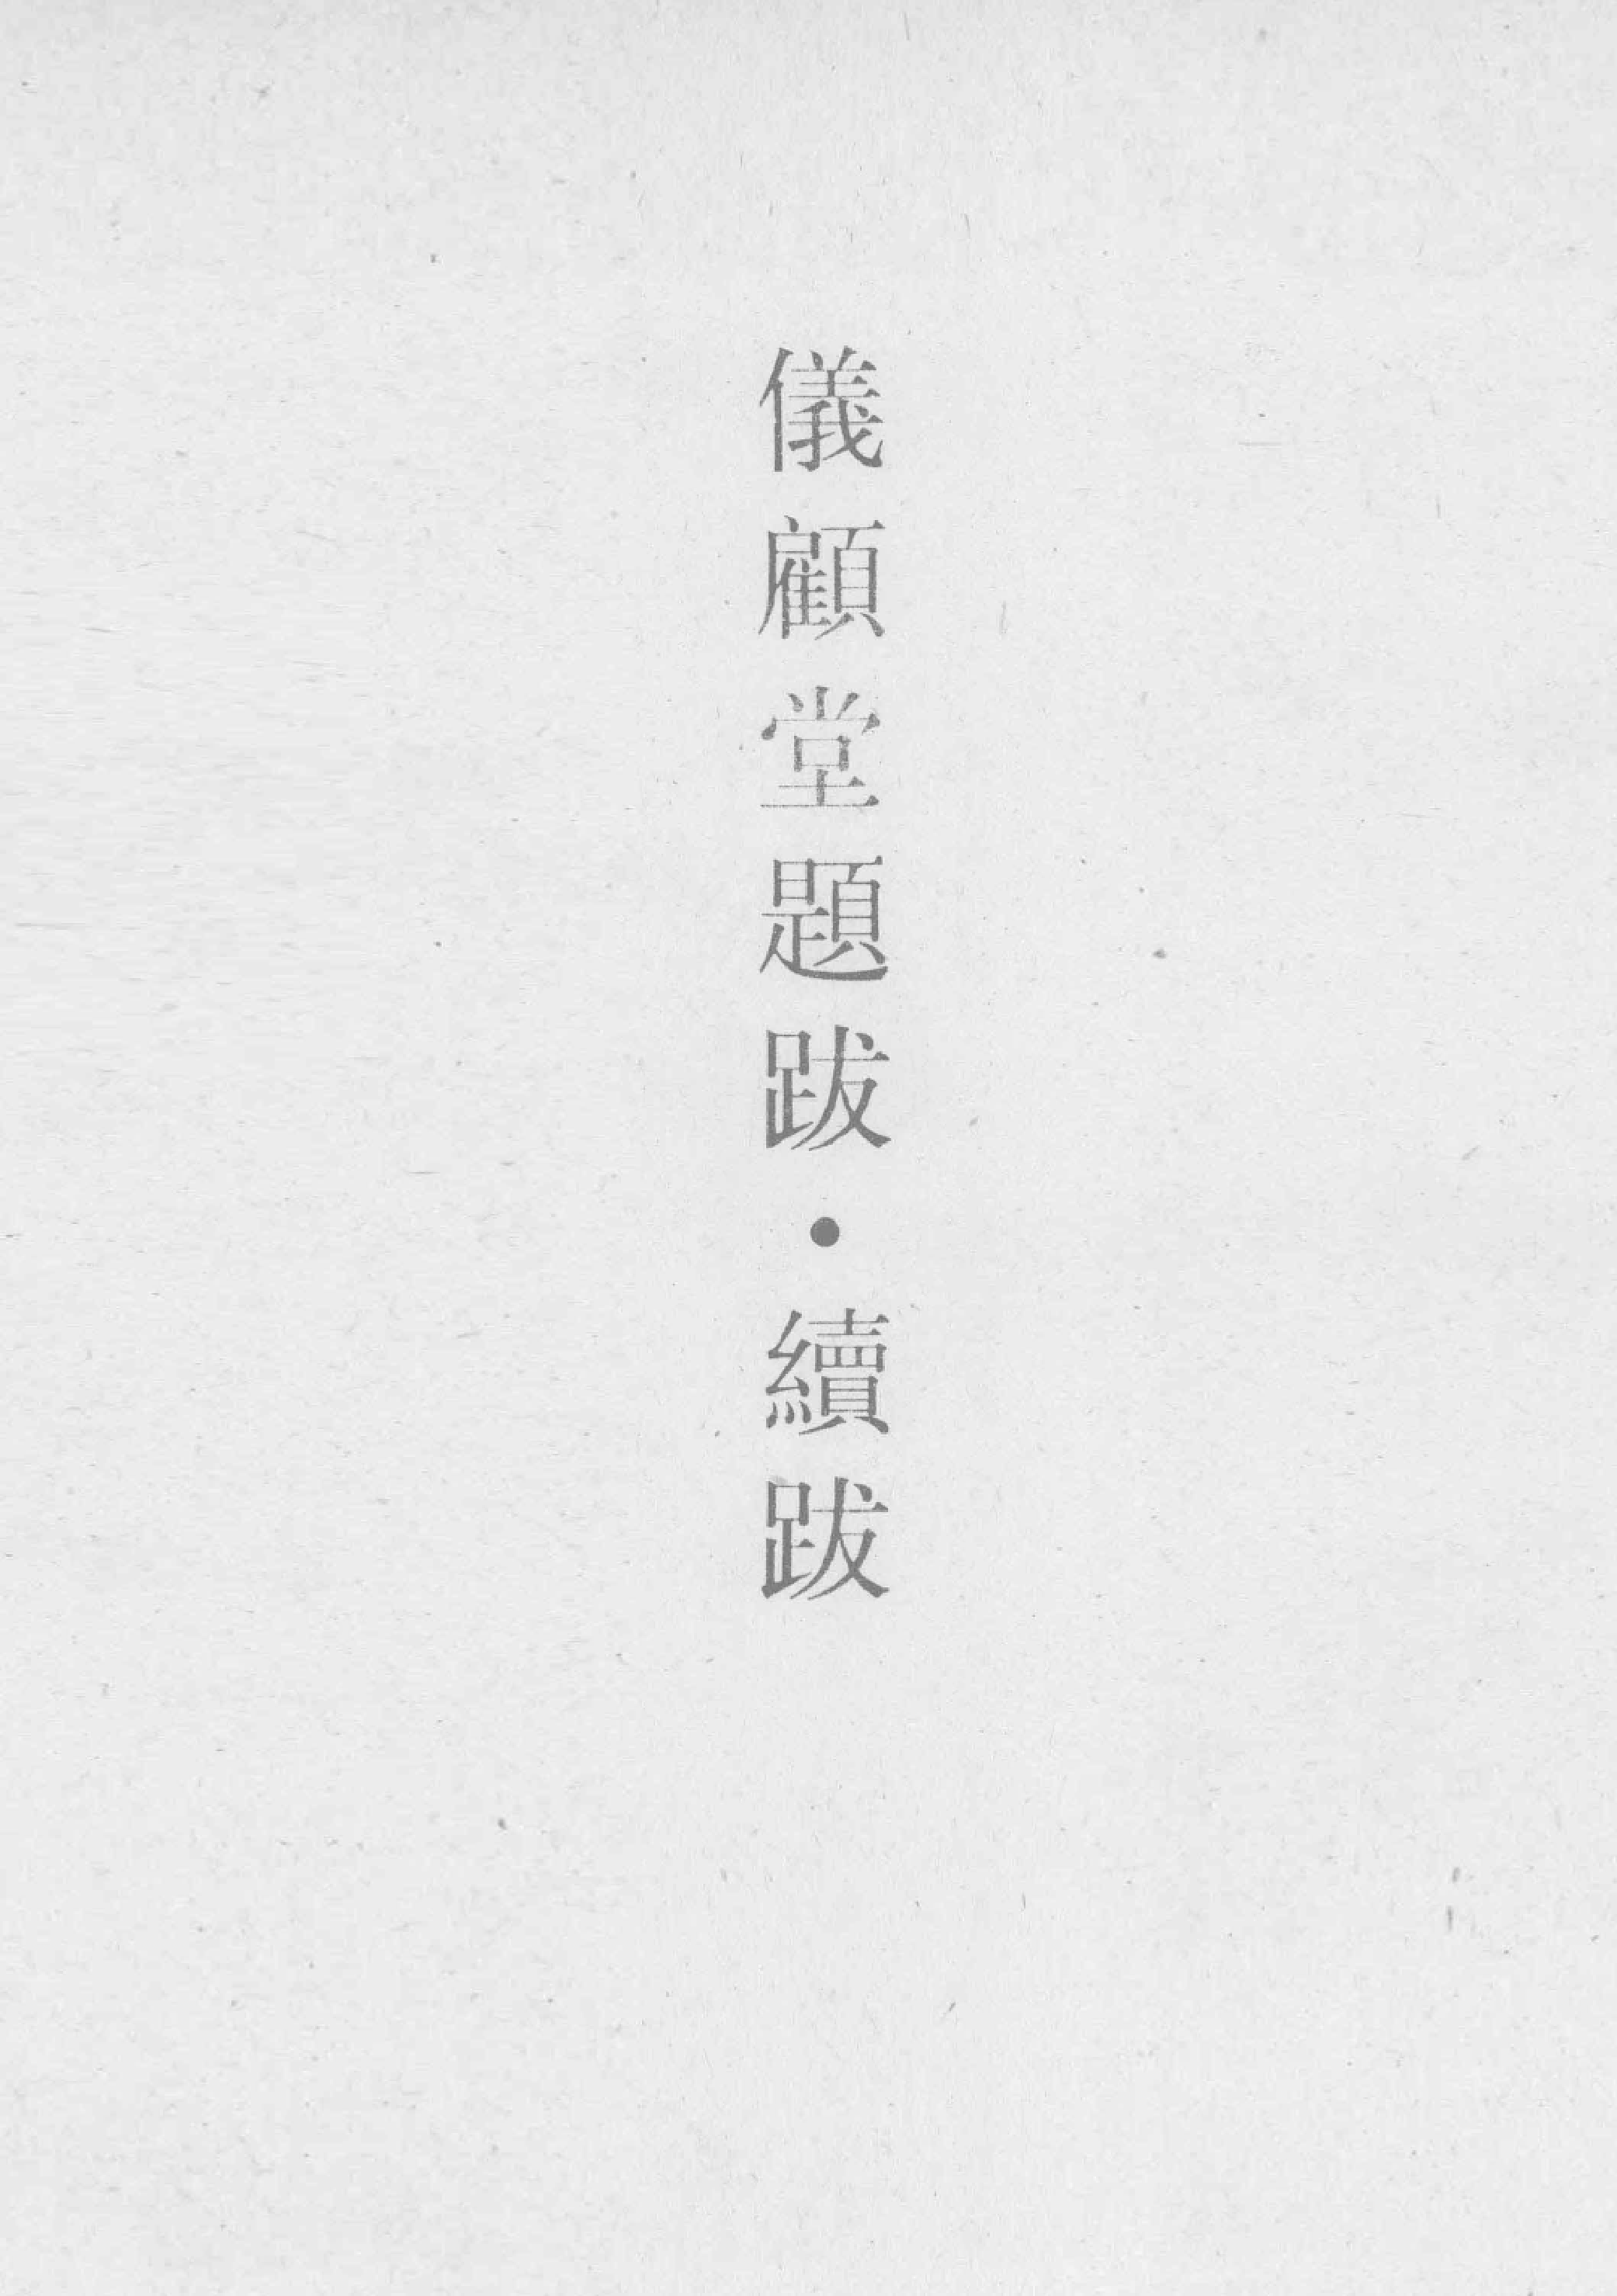 儀顧堂題跋·續跋